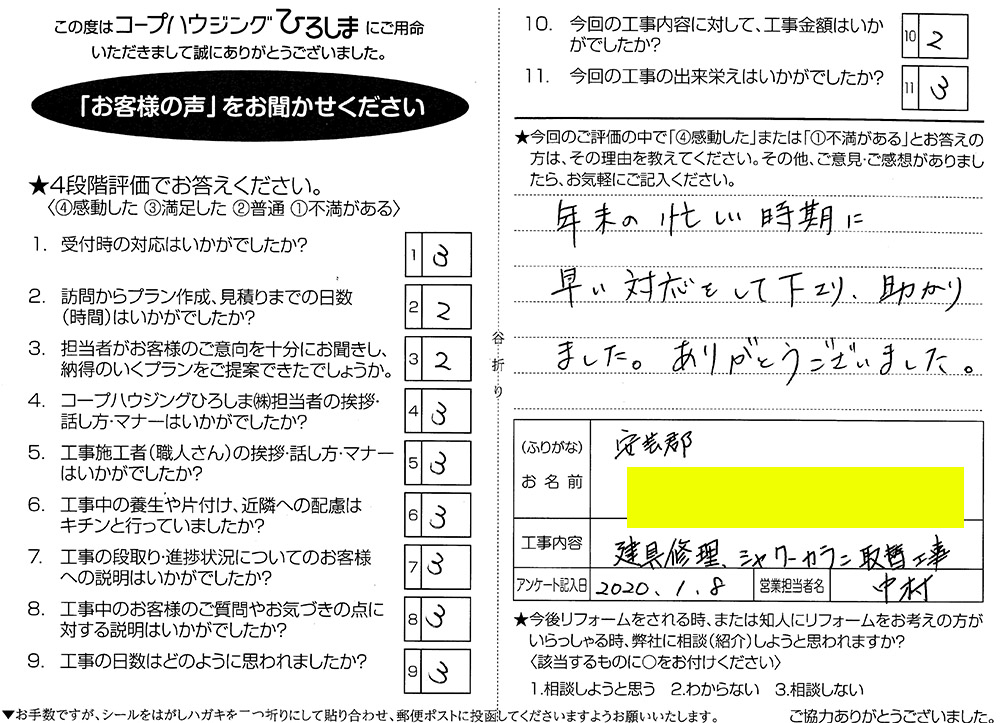 この度はコープハウジングひろしまにご用命
いただきまして誠にありがとうございました。
「お客様の声」をお聞かせください
★4段階評価でお答えください。
〈④感動した ③満足した ②普通 ①不満がある〉
1. 受付時の対応はいかがでしたか?
1 3
2. 訪問からプラン作成、見積りまでの日数
(時間)はいかがでしたか?
2 2
3. 担当者がお客様のご意向を十分にお聞きし、
納得のいくプランをご提案できたでしょうか。
3 2
4. コープハウジングひろしま㈱担当者の挨拶・
話し方・マナーはいかがでしたか?
4 3
5. 工事施工者(職人さん)の挨拶・話し方・マナー
はいかがでしたか?
5 3
6. 工事中の養生や片付け、近隣への配慮は
キチンと行っていましたか?
6 3
7. 工事の段取り・進捗状況についてのお客様
への説明はいかがでしたか?
7 3
8. 工事中のお客様のご質問やお気づきの点に
対する説明はいかがでしたか?
8 3
9. 工事の日数はどのように思われましたか?
9 3
▼お手数ですが、シールをはがしハガキを二つ折りにして貼り合わせ、郵便ポストに投函してくださいますようお願いいたします。
谷折り
10. 今回の工事内容に対して、工事金額はいか
がでしたか?
10 2
11. 今回の工事の出来栄えはいかがでしたか?
11 3
★今回のご評価の中で「④感動した」または「①不満がある」とお答えの
方は、その理由を教えてください。その他、ご意見・ご感想がありまし
たら、お気軽にご記入ください。
年末の忙しい時期に
早い対応をして下さり、助かり
ました。ありがとうございました。
(ふりがな)
お名前
安芸郡
工事内容 建具修理、シャワーカラン取替工事
アンケート記入日 2020.1.8 営業担当者名 中村
★今後リフォームをされる時、または知人にリフォームをお考えの方が
いらっしゃる時、弊社に相談(紹介)しようと思われますか?
〈該当するものに○をお付けください〉
1.相談しようと思う 2.わからない 3.相談しない
ご協力ありがとうございました。